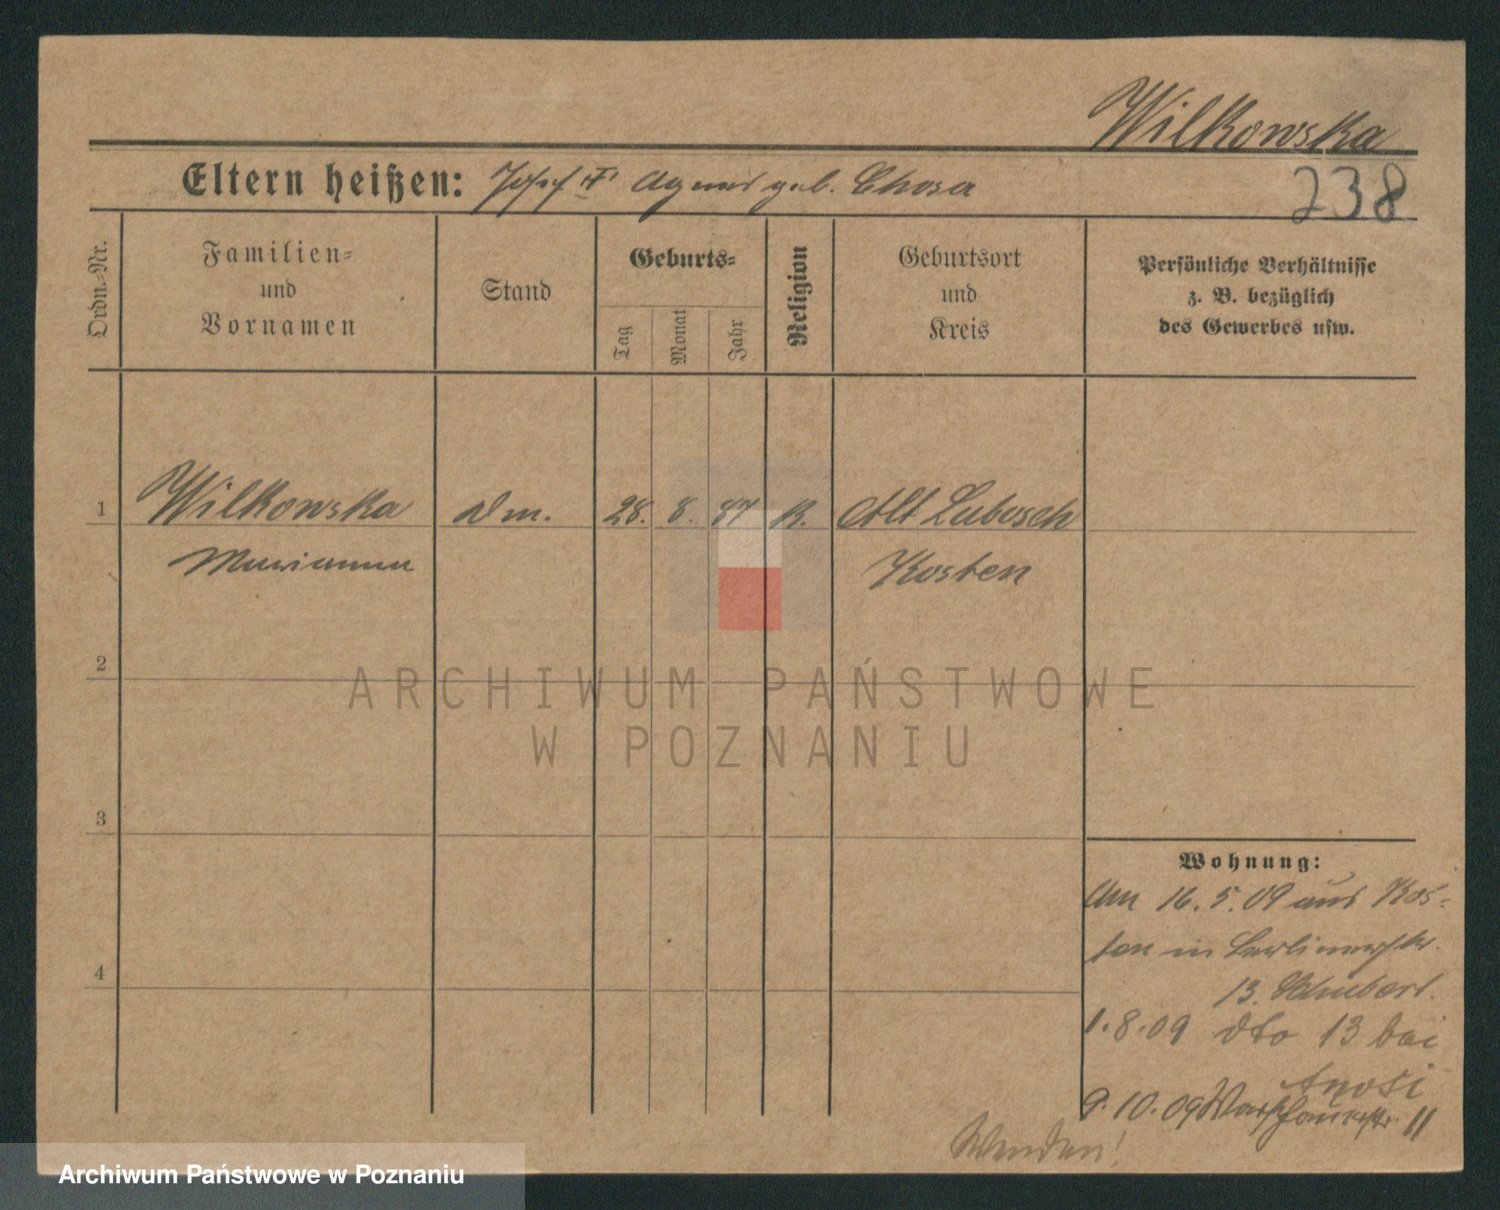 Wilkowska
Eltern heißen: Josef † Agnes geb. Chosa
238
Ordn.-Nr.
Familien-
und
Vornamen
Stand
Geburts-
Tag
Monat
Jahr
Religion
Geburtsort
und
Kreis
Persönliche Verhältnisse
z. B. bezüglich
des Gewerbes usw.
1 Wilkowska Dm. 28. 8. 87 K. Alt Lubosch
Marianna Kosten
2
3
4
Wohnung:
Am 16.5.09 aus Kos-
ten in Berlinerstr.
13.
1.8.09 dto 13 bei
9.10.09 11
Wenden!
ARCHIWUM PAŃSTWOWE
W POZNANIU
Archiwum Państwowe w Poznaniu